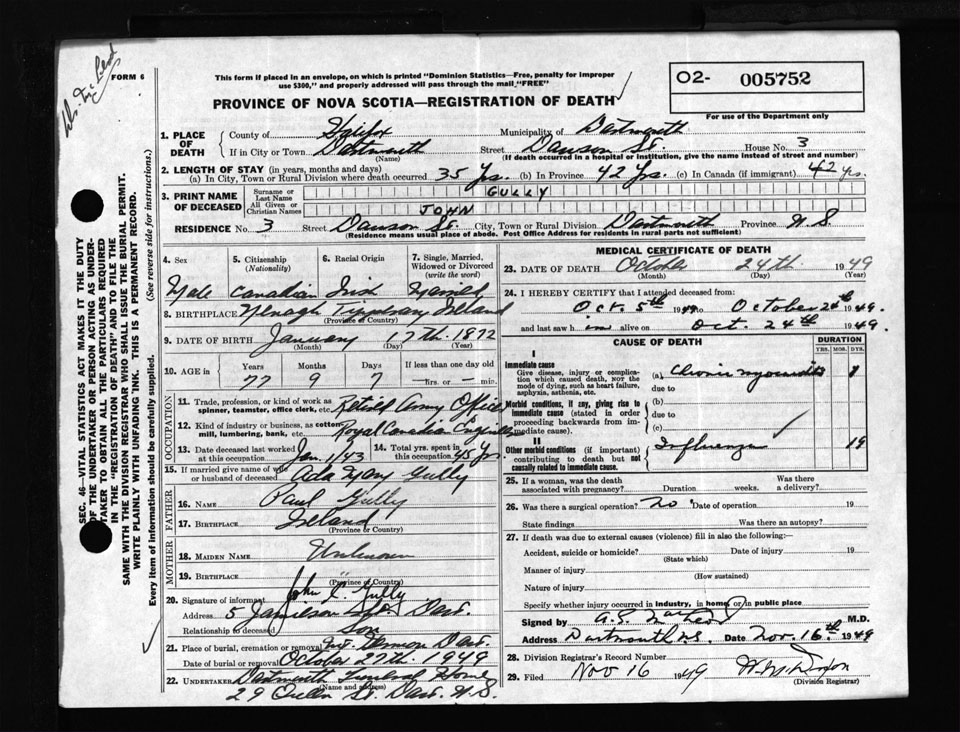 Dr. McLeod
FORM 6
This form if placed in an envelope, on which is printed "Dominion Statistics—Free, penalty for improper
use $300," and properly addressed will pass through the mail "FREE"
PROVINCE OF NOVA SCOTIA—REGISTRATION OF DEATH
O2- 005752
For use of the Department only
SEC. 46—VITAL STATISTICS ACT MAKES IT THE DUTY
OF THE UNDERTAKER OR PERSON ACTING AS UNDER-
TAKER TO OBTAIN ALL THE PARTICULARS REQUIRED
IN THE "REGISTRATION OF DEATH" AND TO FILE THE
SAME WITH THE DIVISION REGISTRAR WHO SHALL ISSUE THE BURIAL PERMIT.
WRITE PLAINLY WITH UNFADING INK. THIS IS A PERMANENT RECORD.
Every item of information should be carefully supplied. (See reverse side for instructions.)
1. PLACE OF DEATH
County of Halifax Municipality of Dartmouth
If in City or Town Dartmouth Street Dawson St. House No. 3
(Name) (If death occurred in a hospital or institution, give the name instead of street and number)
2. LENGTH OF STAY (in years, months and days)
(a) In City, Town or Rural Division where death occurred 35 Yrs. (b) In Province 42 Yrs. (c) In Canada (if immigrant) 42 yrs.
3. PRINT NAME OF DECEASED
Surname or Last Name GULLY
All Given or Christian Names JOHN
RESIDENCE No. 3 Street Dawson St. City, Town or Rural Division Dartmouth Province N.S.
(Residence means usual place of abode. Post Office Address for residents in rural parts not sufficient)
4. Sex 5. Citizenship (Nationality) 6. Racial Origin 7. Single, Married, Widowed or Divorced (write the word)
Male Canadian Irish Married
8. BIRTHPLACE Nenagh Tipperary Ireland
(Province or Country)
9. DATE OF BIRTH January 17th. 1872
(Month) (Day) (Year)
10. AGE in Years Months Days If less than one day old
77 9 7 —hrs. or — min.
OCCUPATION
11. Trade, profession, or kind of work as spinner, teamster, office clerk, etc. Retired Army Officer
12. Kind of industry or business, as cotton mill, lumbering, bank, etc. Royal Canadian Engineers
13. Date deceased last worked at this occupation Jan. 1/43 14. Total yrs. spent in this occupation 45 Yrs.
15. If married give name of wife or husband of deceased Ada Mary Gully
FATHER
16. Name Paul Gully
17. Birthplace Ireland
(Province or Country)
MOTHER
18. Maiden Name Unknown
19. Birthplace
(Province or Country)
20. Signature of informant John C. Gully
Address 5 Jamieson St. Dart.
Relationship to deceased Son
21. Place of burial, cremation or removal Mt. Hermon Dart.
Date of burial or removal October 27th. 1949
22. Undertaker Dartmouth Funeral Home
(Name and address)
29 Queen St. Dart. N.S.
Medical Certificate of Death
23. DATE OF DEATH October 24th 1949
(Month) (Day)
24. I HEREBY CERTIFY that I attended deceased from:
Oct. 5th 1949 to October 24th 1949.
and last saw h im alive on Oct. 24th 1949.
CAUSE OF DEATH DURATION
YRS. MOS. DYS.
I
Immediate cause
Give disease, injury or complication which caused death, NOT the mode of dying, such as heart failure, asphyxia, asthenia, etc.
(a) Chronic myocarditis
due to
Morbid conditions, if any, giving rise to immediate cause (stated in order proceeding backwards from immediate cause).
(b)
due to
(c)
II
Other morbid conditions (if important) contributing to death but not causally related to immediate cause.
Influenza 19
25. If a woman, was the death associated with pregnancy? Duration weeks. Was there a delivery?
26. Was there a surgical operation? No Date of operation 19
State findings Was there an autopsy?
27. If death was due to external causes (violence) fill in also the following:—
Accident, suicide or homicide? Date of injury 19
(State which)
Manner of injury
(How sustained)
Nature of injury
Specify whether injury occurred in industry, in home, or in public place
Signed by M.D.
Address Dartmouth N.S. Date Nov. 16th 1949
28. Division Registrar's Record Number
29. Filed Nov 16 1949
(Division Registrar)